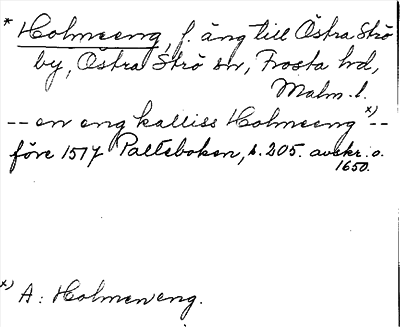 * Holmeeng, f. äng till Östra Strö
by, Östra Strö sn, Frosta hd,
Malm. l.
-- en eng kalliss Holmeeng x) --
före 1517 Palteboken, s. 205. avskr. o.
1650.
x) A: Holmeneng.